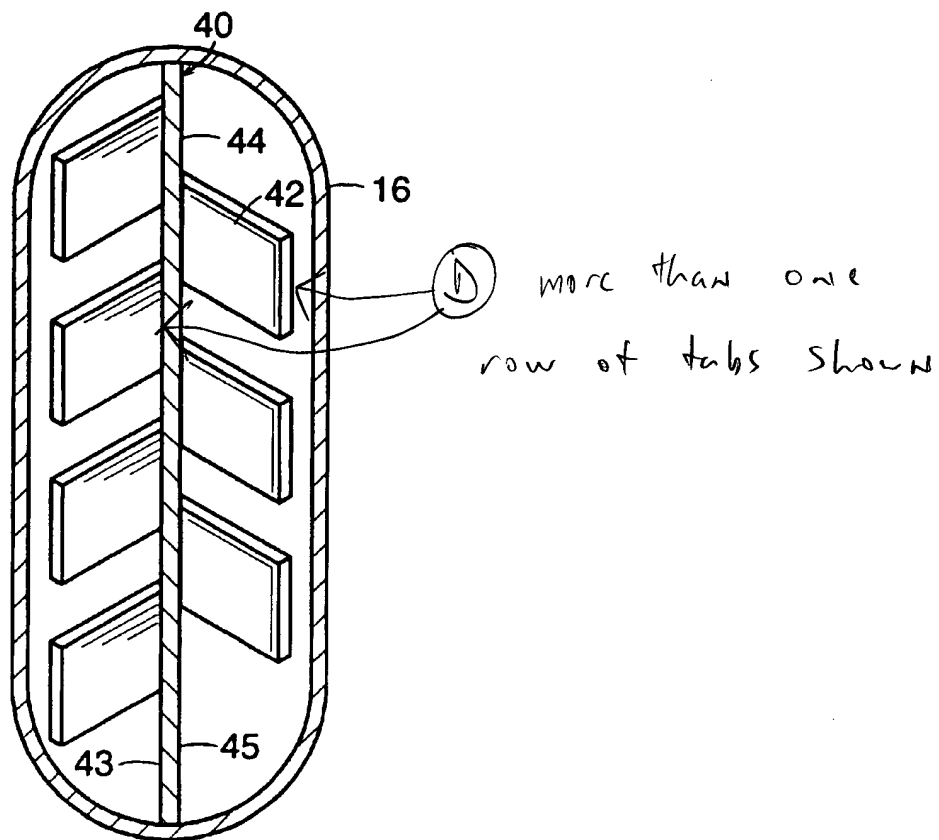 40
44
42
16
D more than one
row of tabs shown
43
45